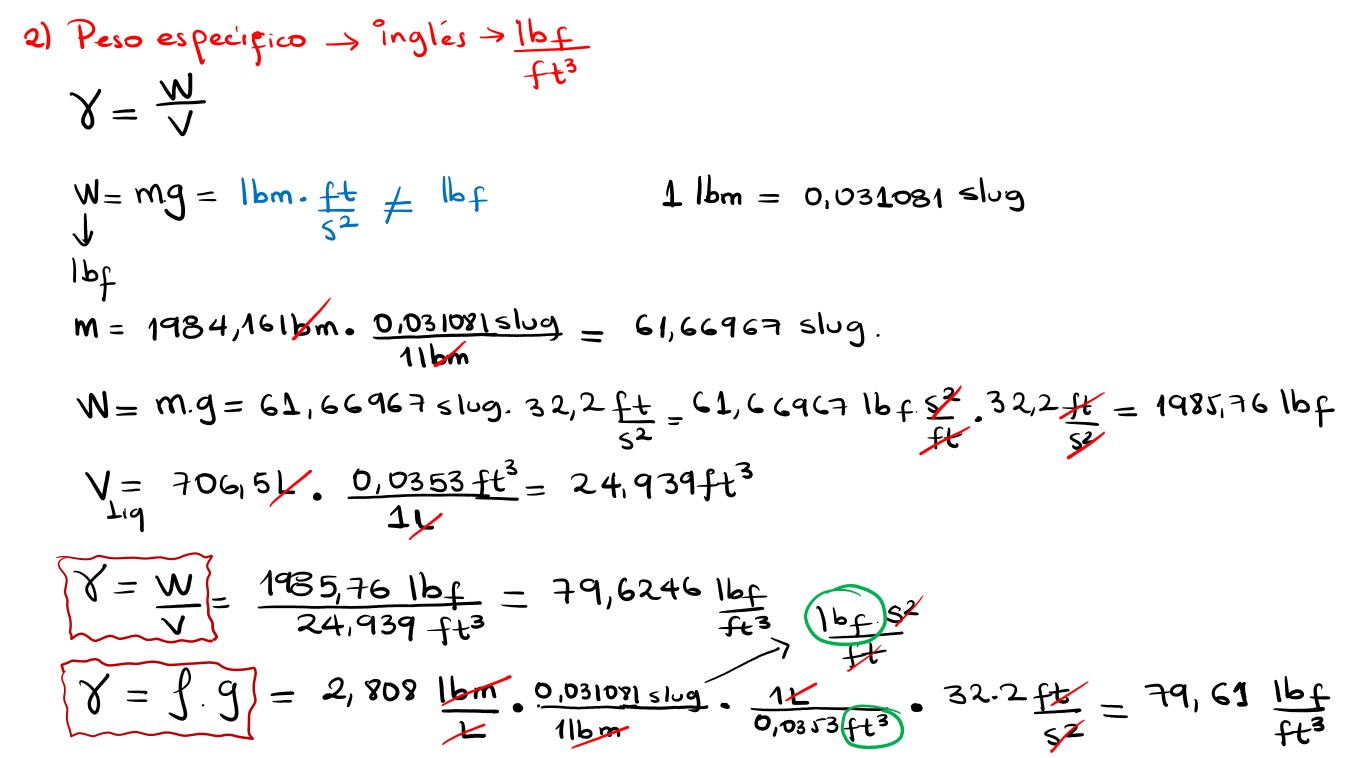 2) Peso específico → inglés → lbf/ft³
γ = W/V
W = mg = lbm · ft/s² ≠ lbf
1 lbm = 0,031081 slug
↓
lbf
m = 1984,16 lbm · 0,031081 slug / 1 lbm = 61,66967 slug.
W = m.g = 61,66967 slug. 32,2 ft/s² = 61,66967 lbf. s²/ft . 32,2 ft/s² = 1985,76 lbf
V Liq = 706,5 L · 0,0353 ft³ / 1 L = 24,939 ft³
γ = W/V = 1985,76 lbf / 24,939 ft³ = 79,6246 lbf/ft³
lbf. s²/ft
γ = ρ.g = 2,808 lbm/L · 0,031081 slug / 1 lbm · 1 L / 0,0353 ft³ · 32.2 ft/s² = 79,61 lbf/ft³